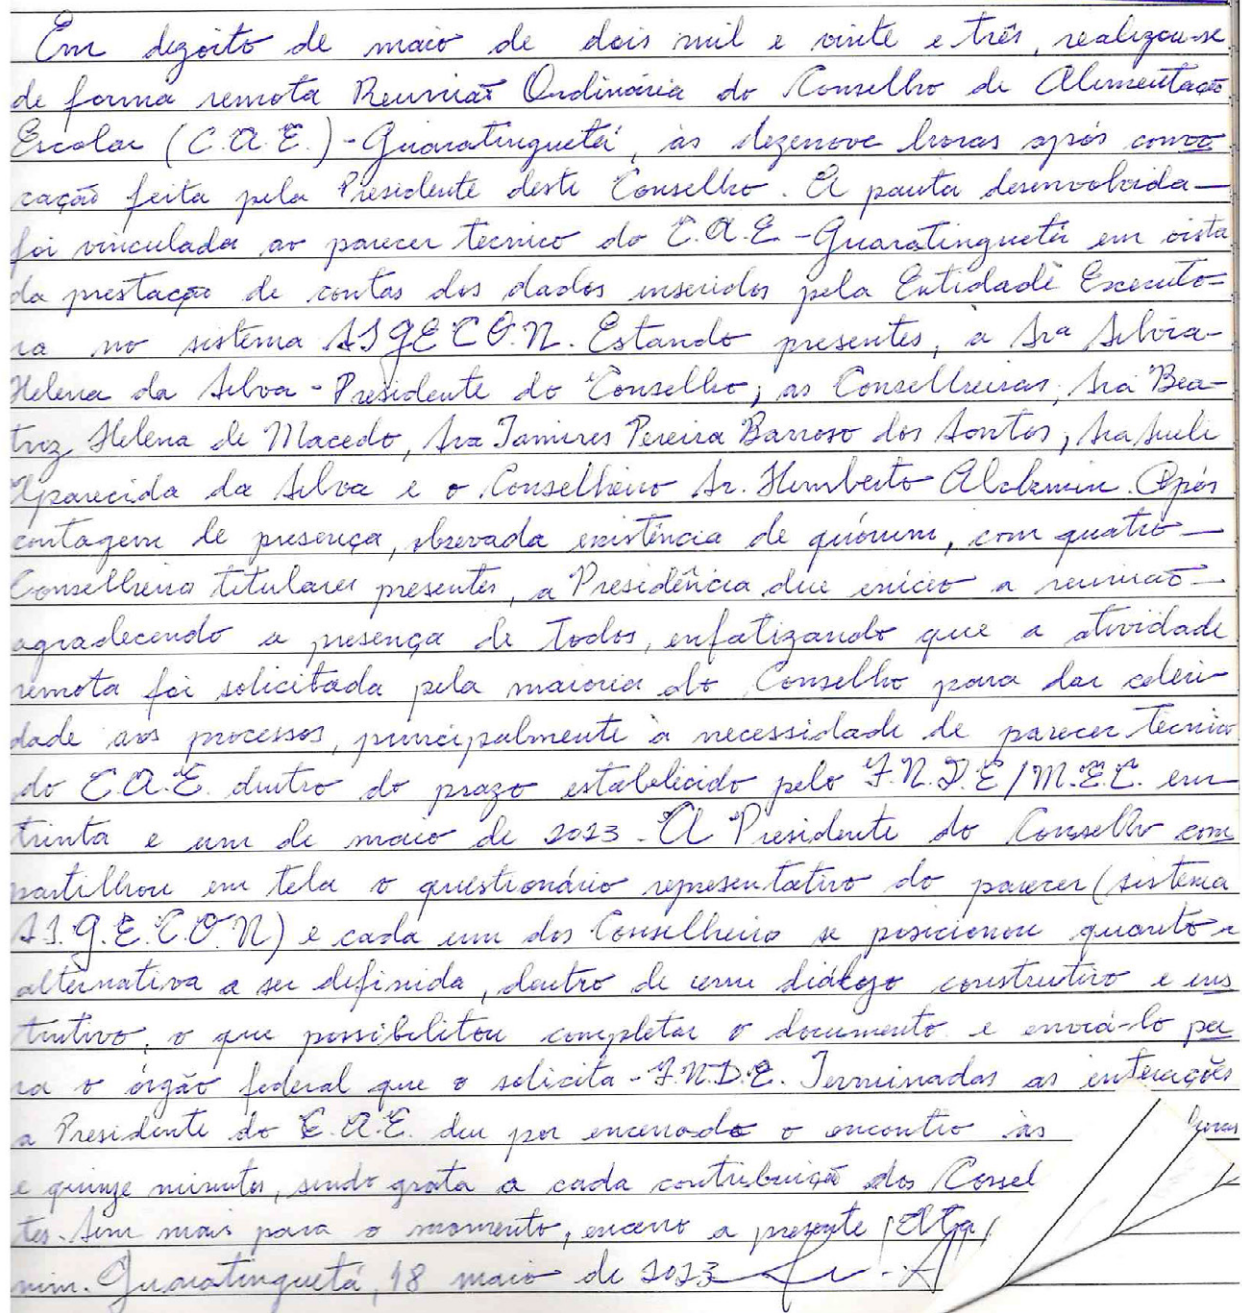 Em dezoito de maio de dois mil e vinte e três, realizou-se
de forma remota Reunião Ordinária do Conselho de Alimentação
Escolar (C.A.E.) - Guaratinguetá, às dezenove horas após convo
cação feita pela Presidente deste Conselho. A pauta desenvolvida
foi vinculada ao parecer técnico do C.A.E - Guaratinguetá em vista
da prestação de contas dos dados inseridos pela Entidade Executo-
ra no sistema SIGECO.N. Estando presentes, a Sra Silvia
Helena da Silva - Presidente do Conselho, as Conselheiras, Sra Bea-
triz Helena de Macedo, Sra Tamires Pereira Barroso dos Santos, Sra Sueli
Aparecida da Silva e o Conselheiro Sr. Humberto Alckmin. Após
contagem de presença, obsevada existência de quórum, com quatro
Conselheiro titulares presentes, a Presidência deu início a reunião
agradecendo a presença de todos, enfatizando que a atividade
remota foi solicitada pela maioria do Conselho para dar celeri-
dade aos processos, principalmente à necessidade de parecer técnico
do C.A.E. dentro do prazo estabelecido pelo F.N.D.E/M.E.C. em
trinta e um de maio de 2023. A Presidente do Conselho com
partilhou em tela o questionário representativo do parecer (sistema
S.I.G.E.C.O.N) e cada um dos Conselheiro se posicionou quanto a
alternativa a ser definida, dentro de um diálogo construtivo e ins
trutivo, o que possibilitou completar o documento e enviá-lo pa
ra o órgão federal que o solicita - F.N.D.E. Terminadas as interações
a Presidente do C.A.E. deu por encerrado o encontro às horas
e quinze minutos, sendo grata a cada contribuição dos Consel
tes. Sem mais para o momento, encerro a presente Ata,
mim. Guaratinguetá, 18 maio de 2023